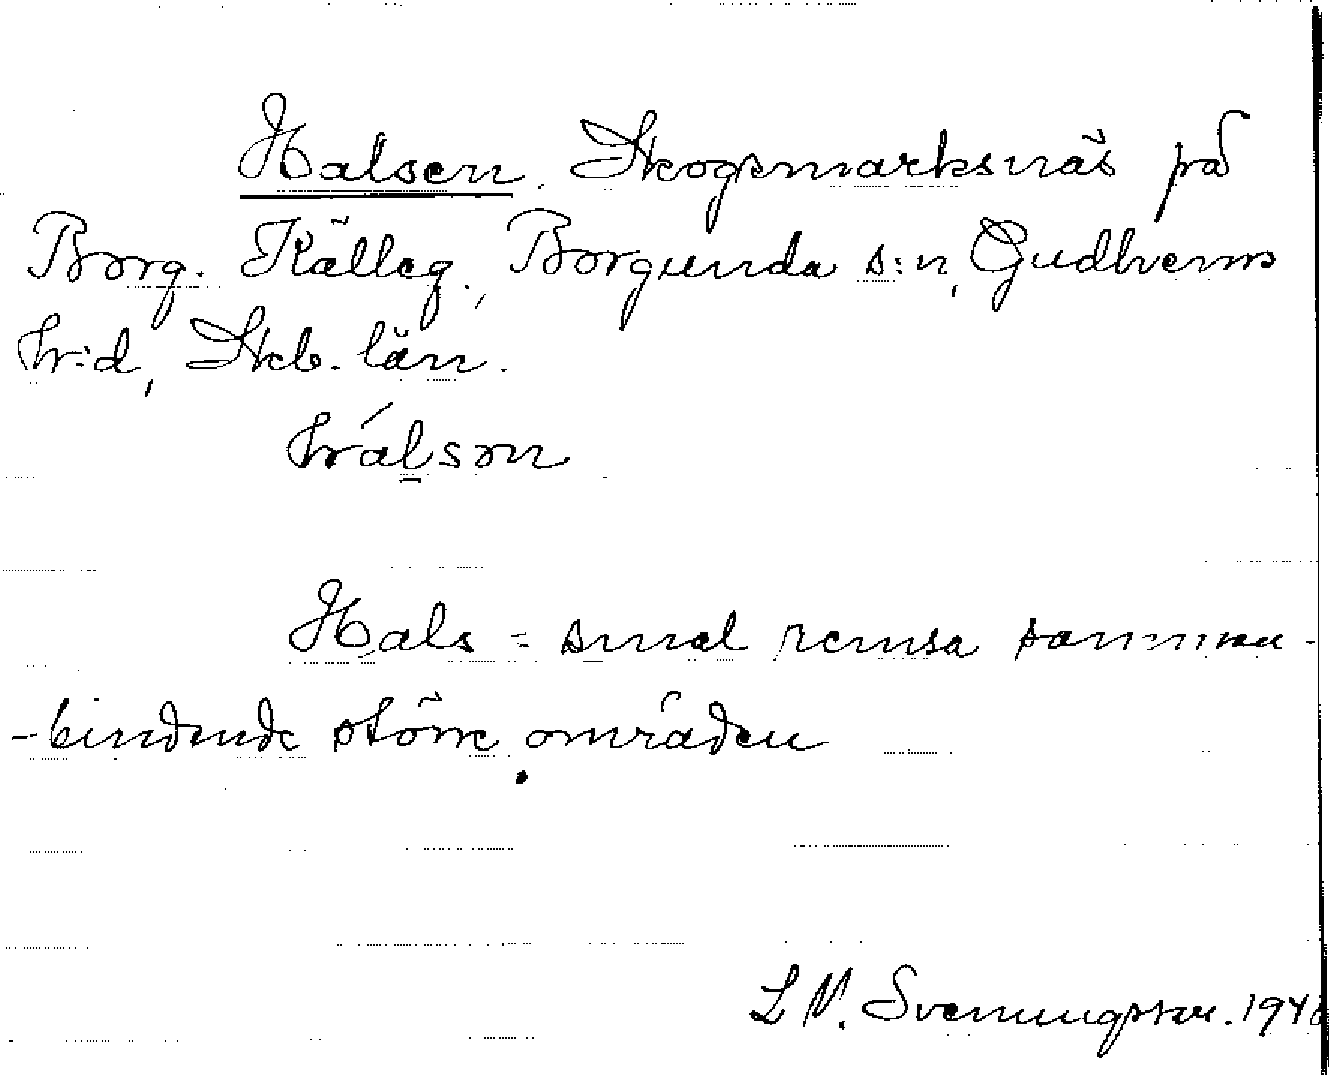 Halsen. Skogsmarksnäs på
Borg. Källeg., Borgunda s:n, Gudhems
h:d, Skb. län.
hálsɷn
Hals = smal remsa samman-
-bindende större områden
L N. Svenningsson. 194